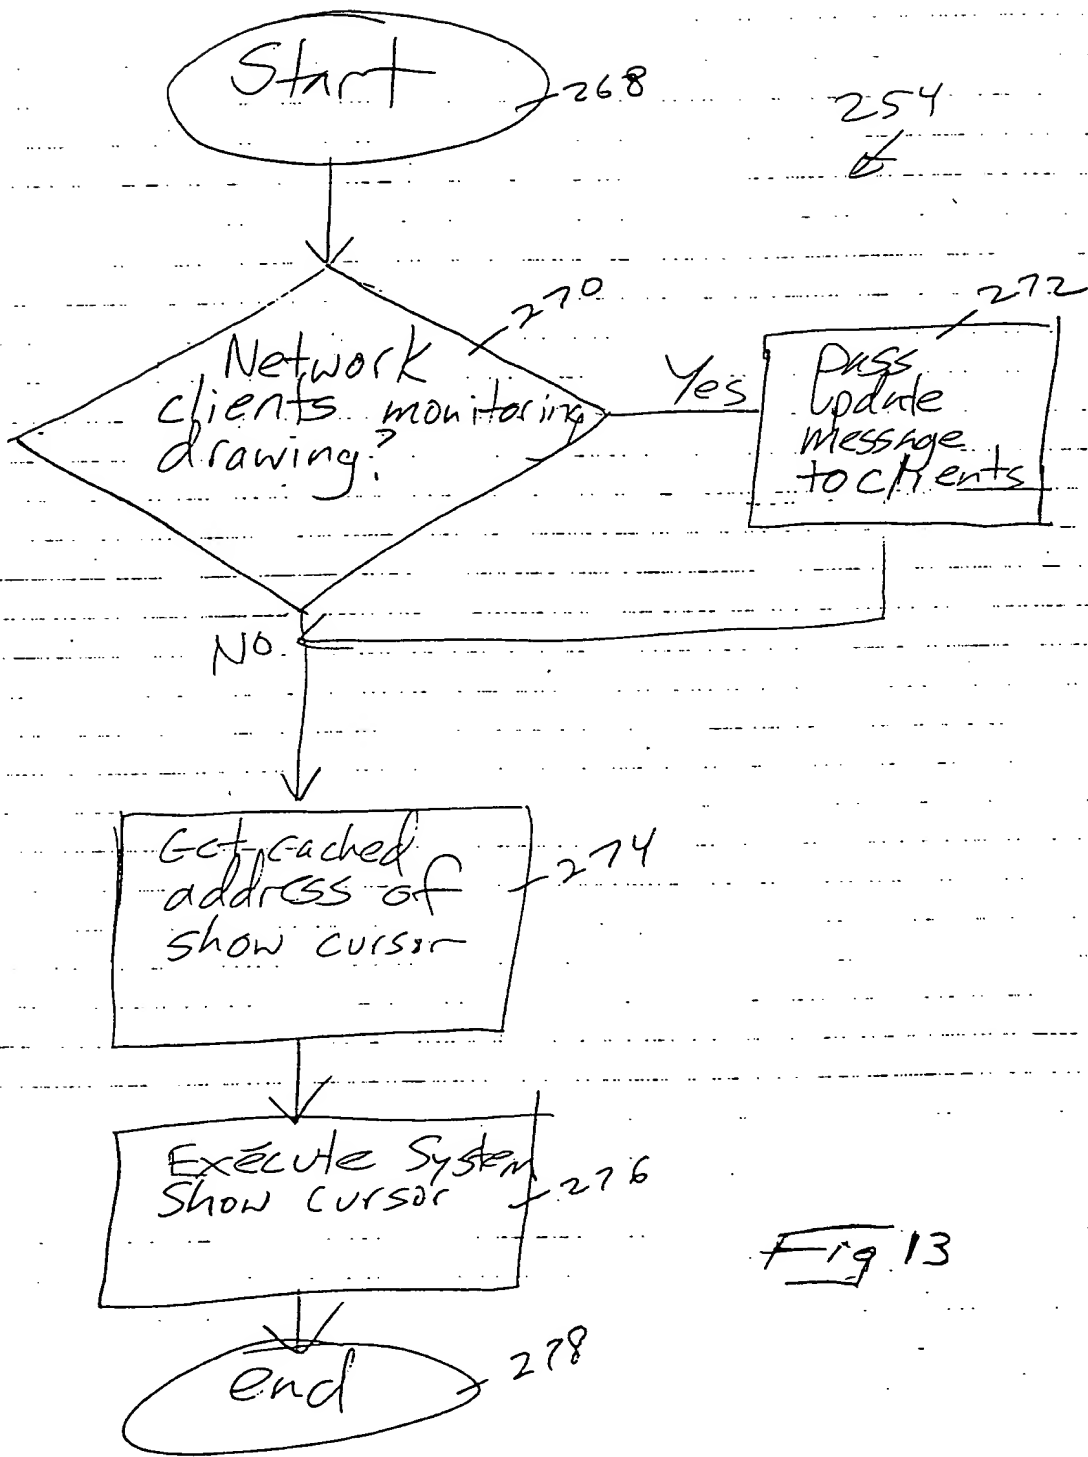 Start
268
254
270
Network
clients monitoring
drawing?
Yes
272
pass
update
message
to clients
NO
Get cached
address of
show cursor
274
Execute System
Show cursor
276
Fig 13
end
278